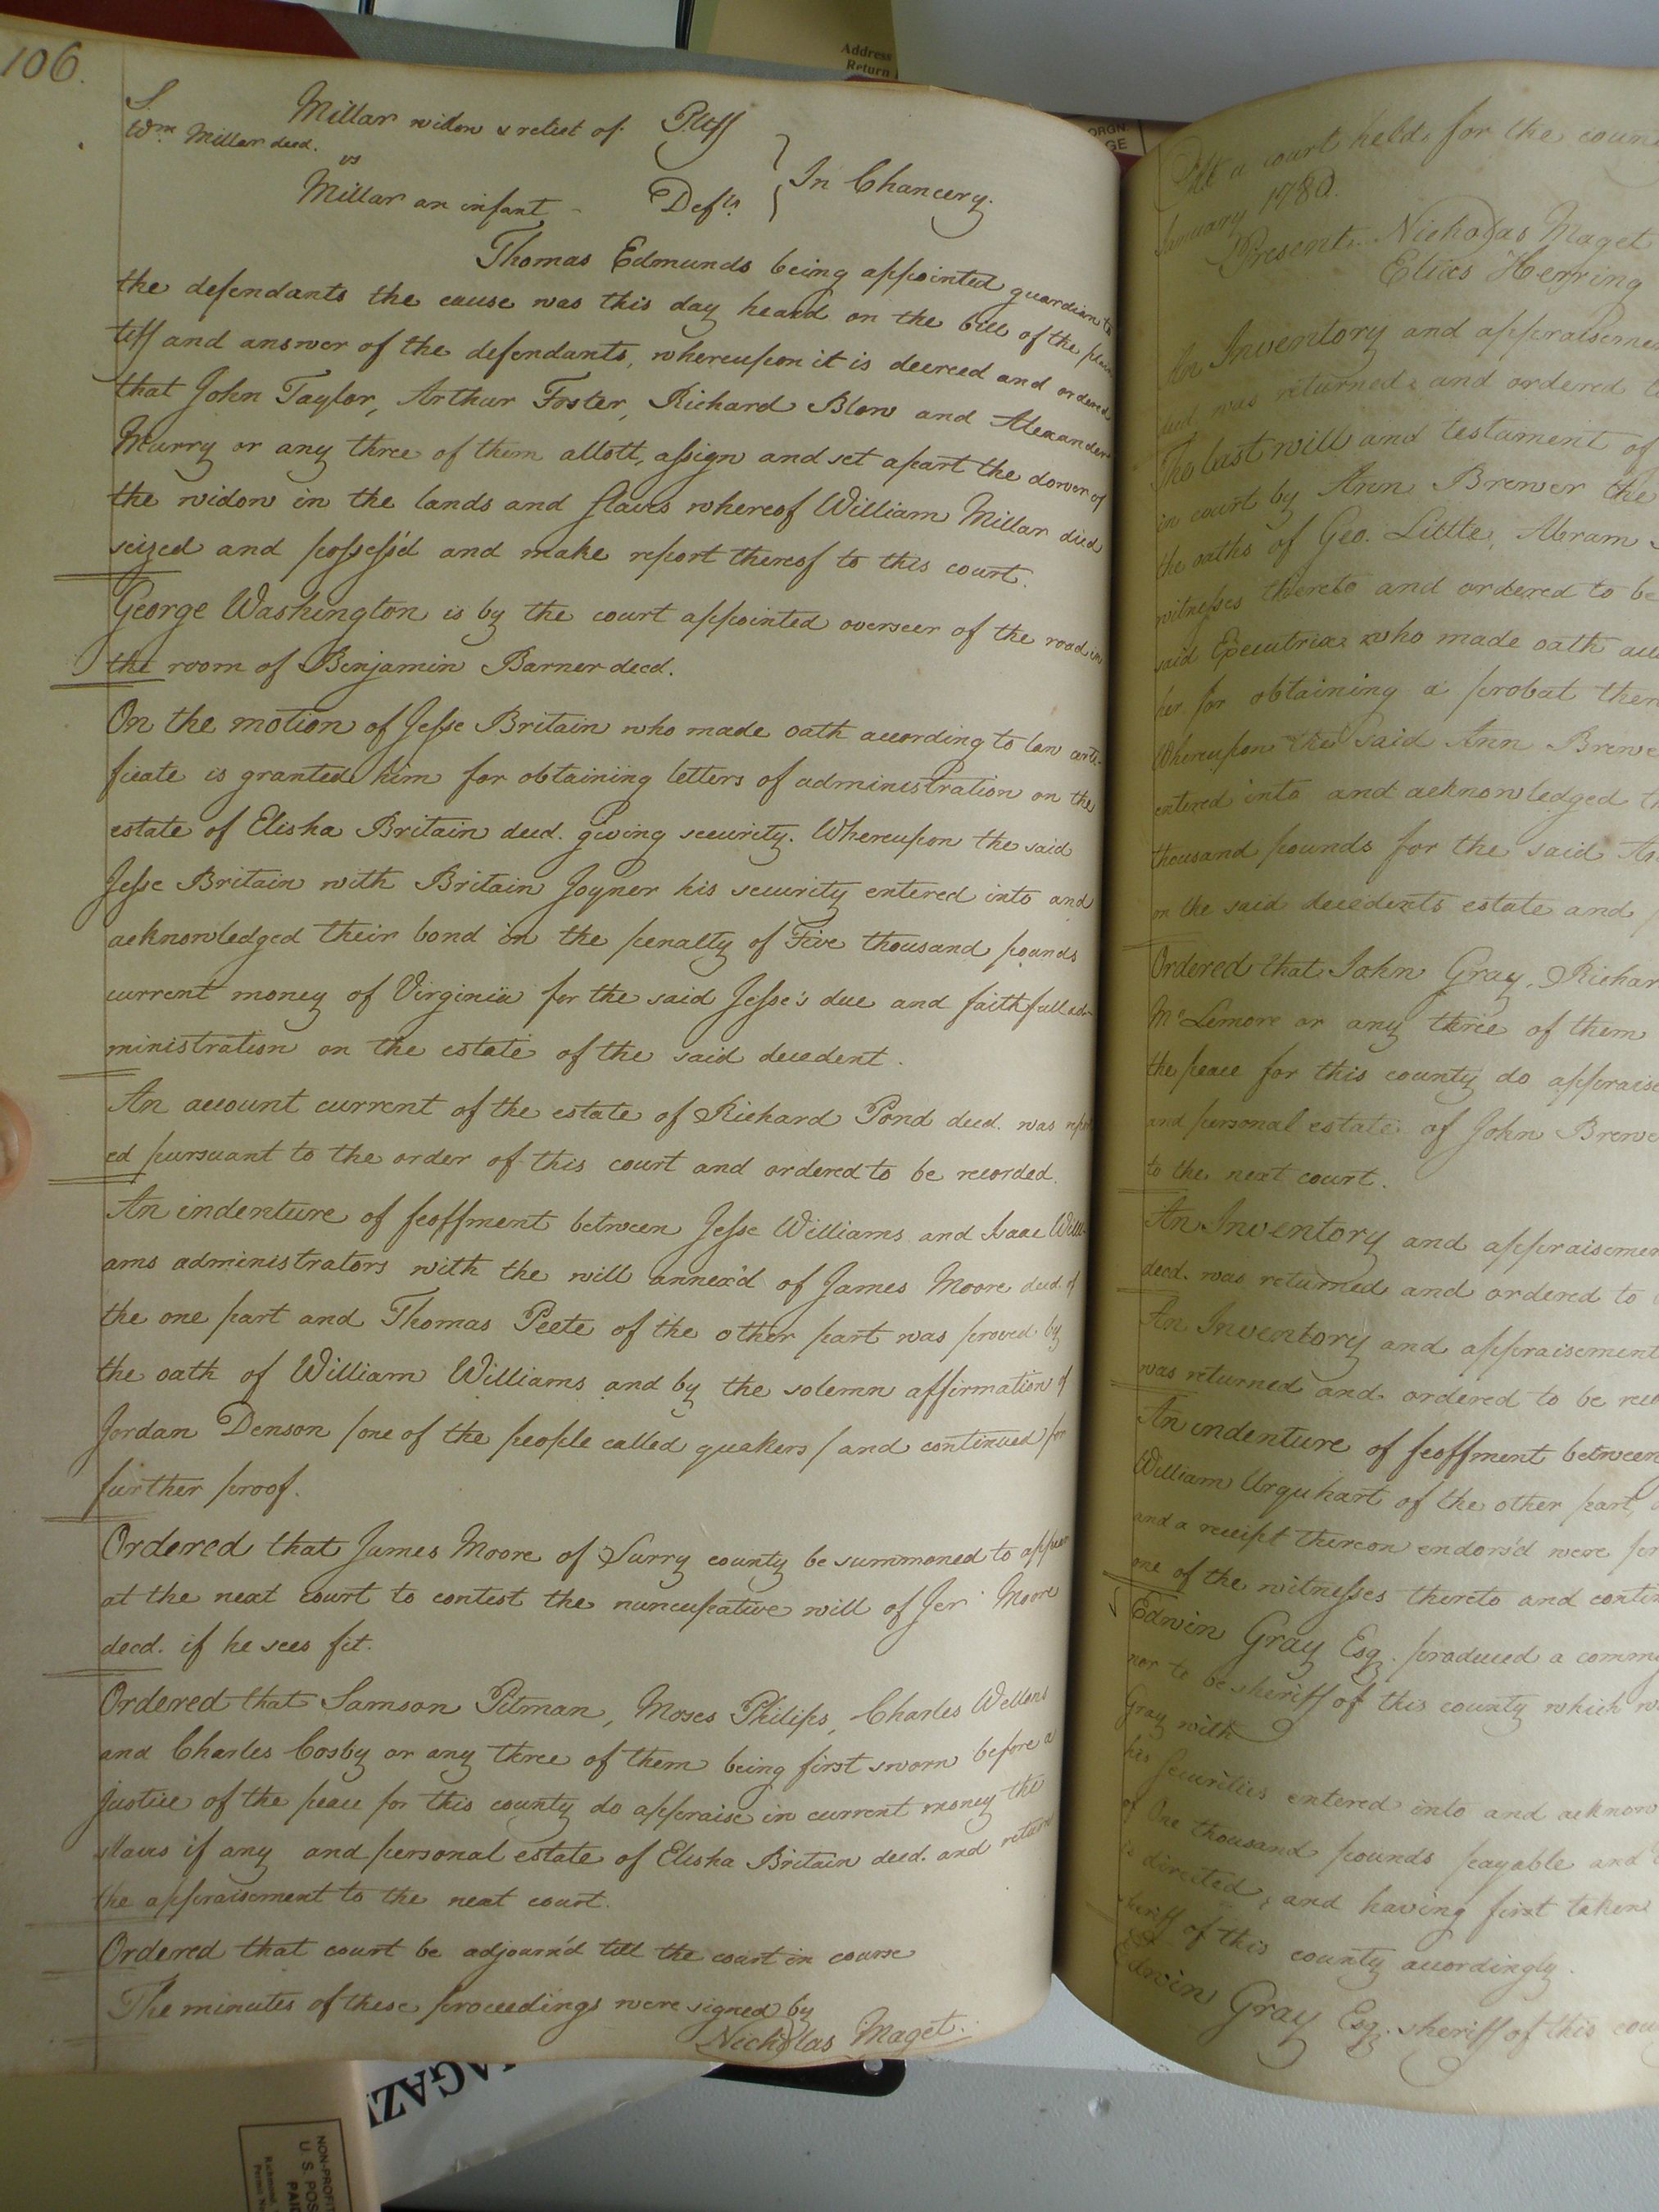 106.
Address
Return
Millar widow & relict of Pltff
Wm Millar decd.
vs
In Chancery.
Millar an infant - Defts
Thomas Edmunds being appointed guardian to
the defendants the cause was this day heard on the bill of the plain
tiff and answer of the defendants, whereupon it is decreed and ordered
that John Taylor, Arthur Foster, Richard Blow and Alexander
Murry or any three of them allott, assign and set apart the dower of
the widow in the lands and slaves whereof William Millar died
seized and possess'd and make report thereof to this court.
George Washington is by the court appointed overseer of the road in
the room of Benjamin Barner decd.
On the motion of Jesse Britain who made oath according to law certi-
ficate is granted him for obtaining letters of administration on the
estate of Elisha Britain decd. giving security. Whereupon the said
Jesse Britain with Britain Joyner his security entered into and
acknowledged their bond in the penalty of Five thousand pounds
current money of Virginia for the said Jesse's due and faithfull ad-
ministration on the estate of the said decedent.
An account current of the estate of Richard Pond decd. was
ed pursuant to the order of this court and ordered to be recorded.
An indenture of feoffment between Jesse Williams and Isaac Willi-
ams administrators with the will annex'd of James Moore decd. of
the one part and Thomas Peete of the other part was proved by
the oath of William Williams and by the solemn affirmation of
Jordan Denson /one of the people called quakers/ and continued for
further proof.
Ordered that James Moore of Surry county be summoned to appear
at the next court to contest the nuncupative will of Jer: Moore
decd. if he sees fit.
Ordered that Samson Pitman, Moses Philips, Charles Wellons
and Charles Cosby or any three of them being first sworn before a
justice of the peace for this county do appraise in current money the
slaves if any and personal estate of Elisha Britain decd. and return
the appraisement to the next court.
Ordered that court be adjourn'd till the court in course
The minutes of these proceedings were signed by
Nicholas Maget.
At a court held for the coun
January 1780.
Present. Nicholas Maget
Elias Herring
An Inventory and appraiseme
decd was returned and ordered t
The last will and testament of
in court by Ann Brewer the
the oaths of Geo. Little, Abram
witnesses thereto and ordered to be
said Executrix who made oath acc
her for obtaining a probat ther
Whereupon the said Ann Brewe
entered into and acknowledged th
thousand pounds for the said An
on the said decedents estate and
Ordered that John Gray, Richar
McLemore or any three of them
the peace for this county do appraise
and personal estate of John Brewe
to the next court.
An Inventory and appraisemen
decd. was returned and ordered to
An Inventory and appraisement
was returned and ordered to be rec
An indenture of feoffment between
William Urquhart of the other part,
and a receipt thereon endors'd were pr
one of the witnesses thereto and contin
Edwin Gray Esq. produced a comm
nor to be sheriff of this county which w
Gray with
his Securities entered into and acknow
of One thousand pounds payable and
is directed, and having first taken
sheriff of this county accordingly.
Edwin Gray Esq. sheriff of this cou
NON-PROFIT
U.S. POS
PAI
Richmond,
Permit No
MAGAZ